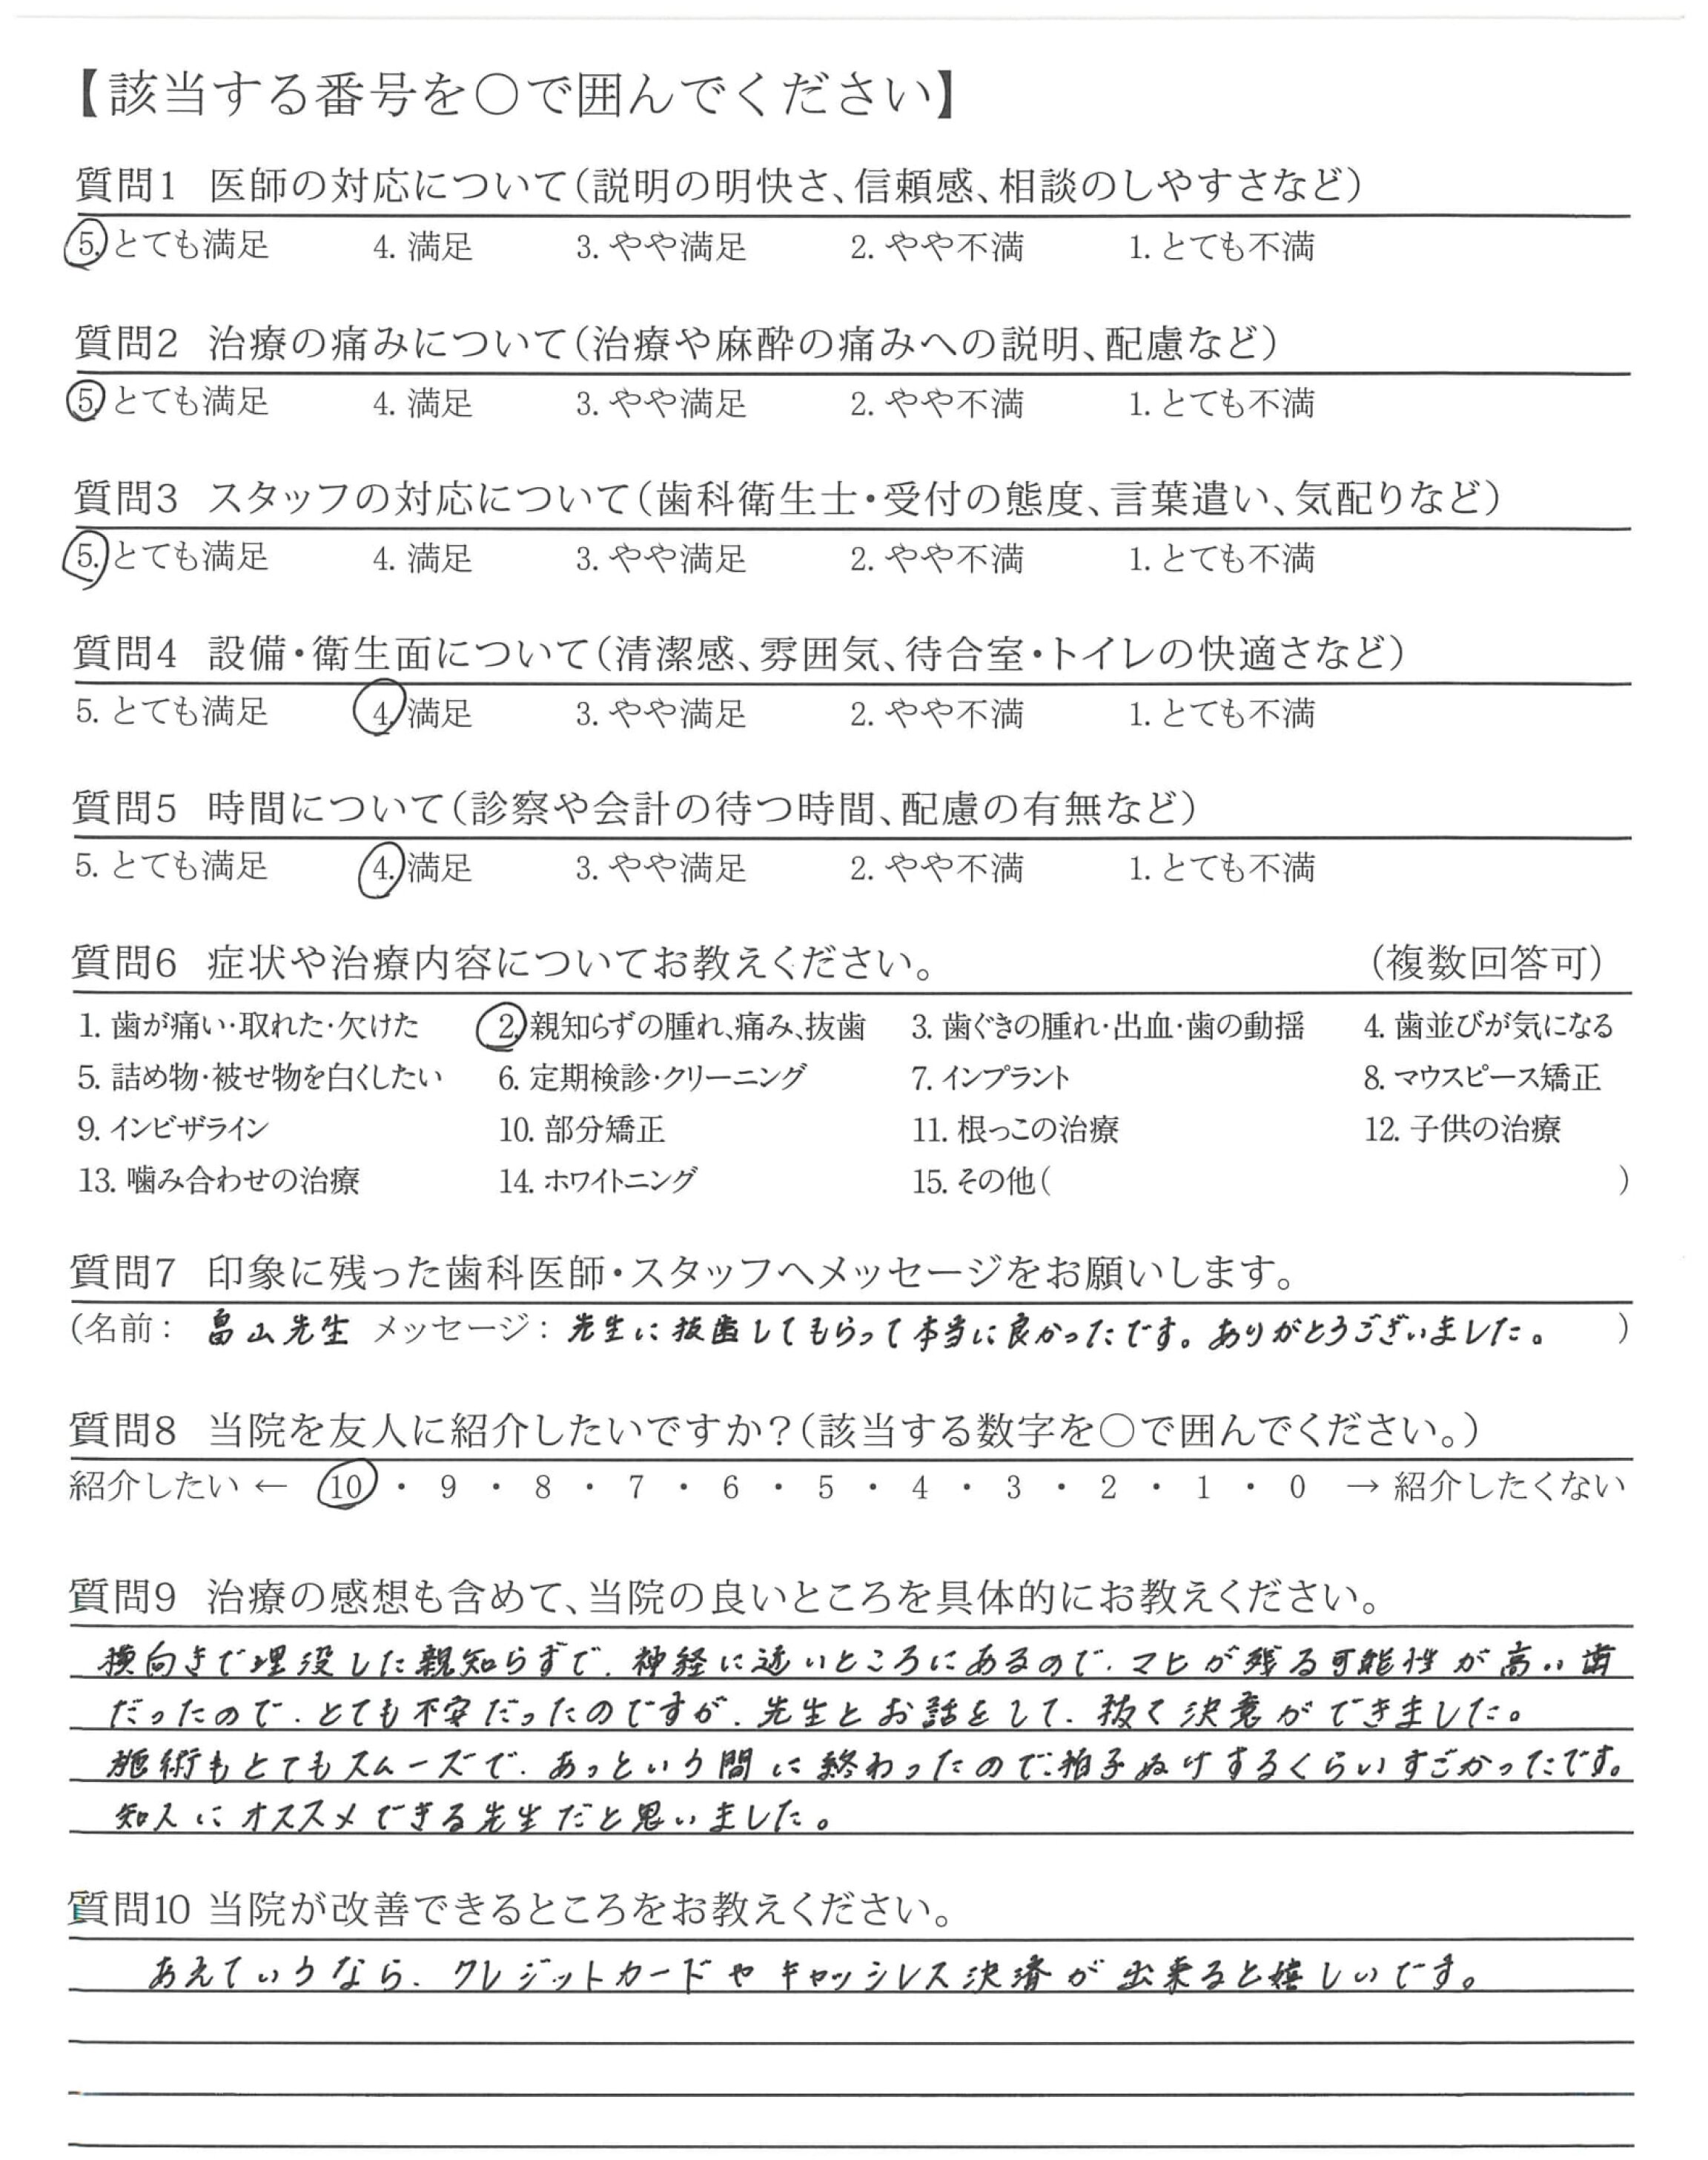 【該当する番号を〇で囲んでください】
質問1 医師の対応について（説明の明快さ、信頼感、相談のしやすさなど）
5. とても満足 4. 満足 3. やや満足 2. やや不満 1. とても不満
質問2 治療の痛みについて（治療や麻酔の痛みへの説明、配慮など）
5. とても満足 4. 満足 3. やや満足 2. やや不満 1. とても不満
質問3 スタッフの対応について（歯科衛生士・受付の態度、言葉遣い、気配りなど）
5. とても満足 4. 満足 3. やや満足 2. やや不満 1. とても不満
質問4 設備・衛生面について（清潔感、雰囲気、待合室・トイレの快適さなど）
5. とても満足 4. 満足 3. やや満足 2. やや不満 1. とても不満
質問5 時間について（診察や会計の待つ時間、配慮の有無など）
5. とても満足 4. 満足 3. やや満足 2. やや不満 1. とても不満
質問6 症状や治療内容についてお教えください。 （複数回答可）
1. 歯が痛い・取れた・欠けた 2. 親知らずの腫れ、痛み、抜歯 3. 歯ぐきの腫れ・出血・歯の動揺 4. 歯並びが気になる
5. 詰め物・被せ物を白くしたい 6. 定期検診・クリーニング 7. インプラント 8. マウスピース矯正
9. インビザライン 10. 部分矯正 11. 根っこの治療 12. 子供の治療
13. 噛み合わせの治療 14. ホワイトニング 15. その他（ ）
質問7 印象に残った歯科医師・スタッフへメッセージをお願いします。
（名前： 畠山先生 メッセージ： 先生に抜歯してもらって本当に良かったです。ありがとうございました。 ）
質問8 当院を友人に紹介したいですか？（該当する数字を〇で囲んでください。）
紹介したい ← 10 ・ 9 ・ 8 ・ 7 ・ 6 ・ 5 ・ 4 ・ 3 ・ 2 ・ 1 ・ 0 → 紹介したくない
質問9 治療の感想も含めて、当院の良いところを具体的にお教えください。
横向きで埋没した親知らずで、神経に近いところにあるので、マヒが残る可能性が高い歯
だったので、とても不安だったのですが、先生とお話をして、抜く決意ができました。
施術もとてもスムーズで、あっという間に終わったので、拍子ぬけするくらいすごかったです。
知人にオススメできる先生だと思いました。
質問10 当院が改善できるところをお教えください。
あえていうなら、クレジットカードやキャッシレス決済が出来ると嬉しいです。